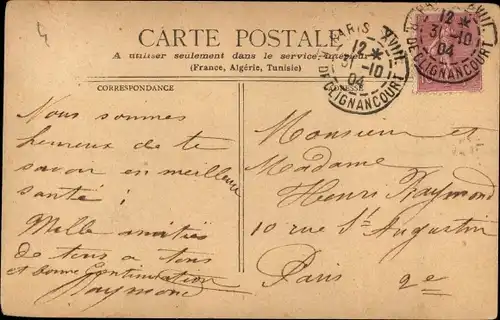 4
CARTE POSTALE
A utiliser seulement dans le service intérieur
(France, Algérie, Tunisie)
CORRESPONDANCE
ADRESSE
PARIS XVIII
12 *
31 -10
04
DE CLIGNANCOURT
PARIS XVIII
12 *
31 -10
04
DE CLIGNANCOURT
Nous sommes
heureux de te
savoir en meilleure
santé !
Mille amitiés
de tous à tous
et bonne continuation
Raymond
Monsieur et
Madame
Henri Raymond
10 rue St Augustin
Paris 2e